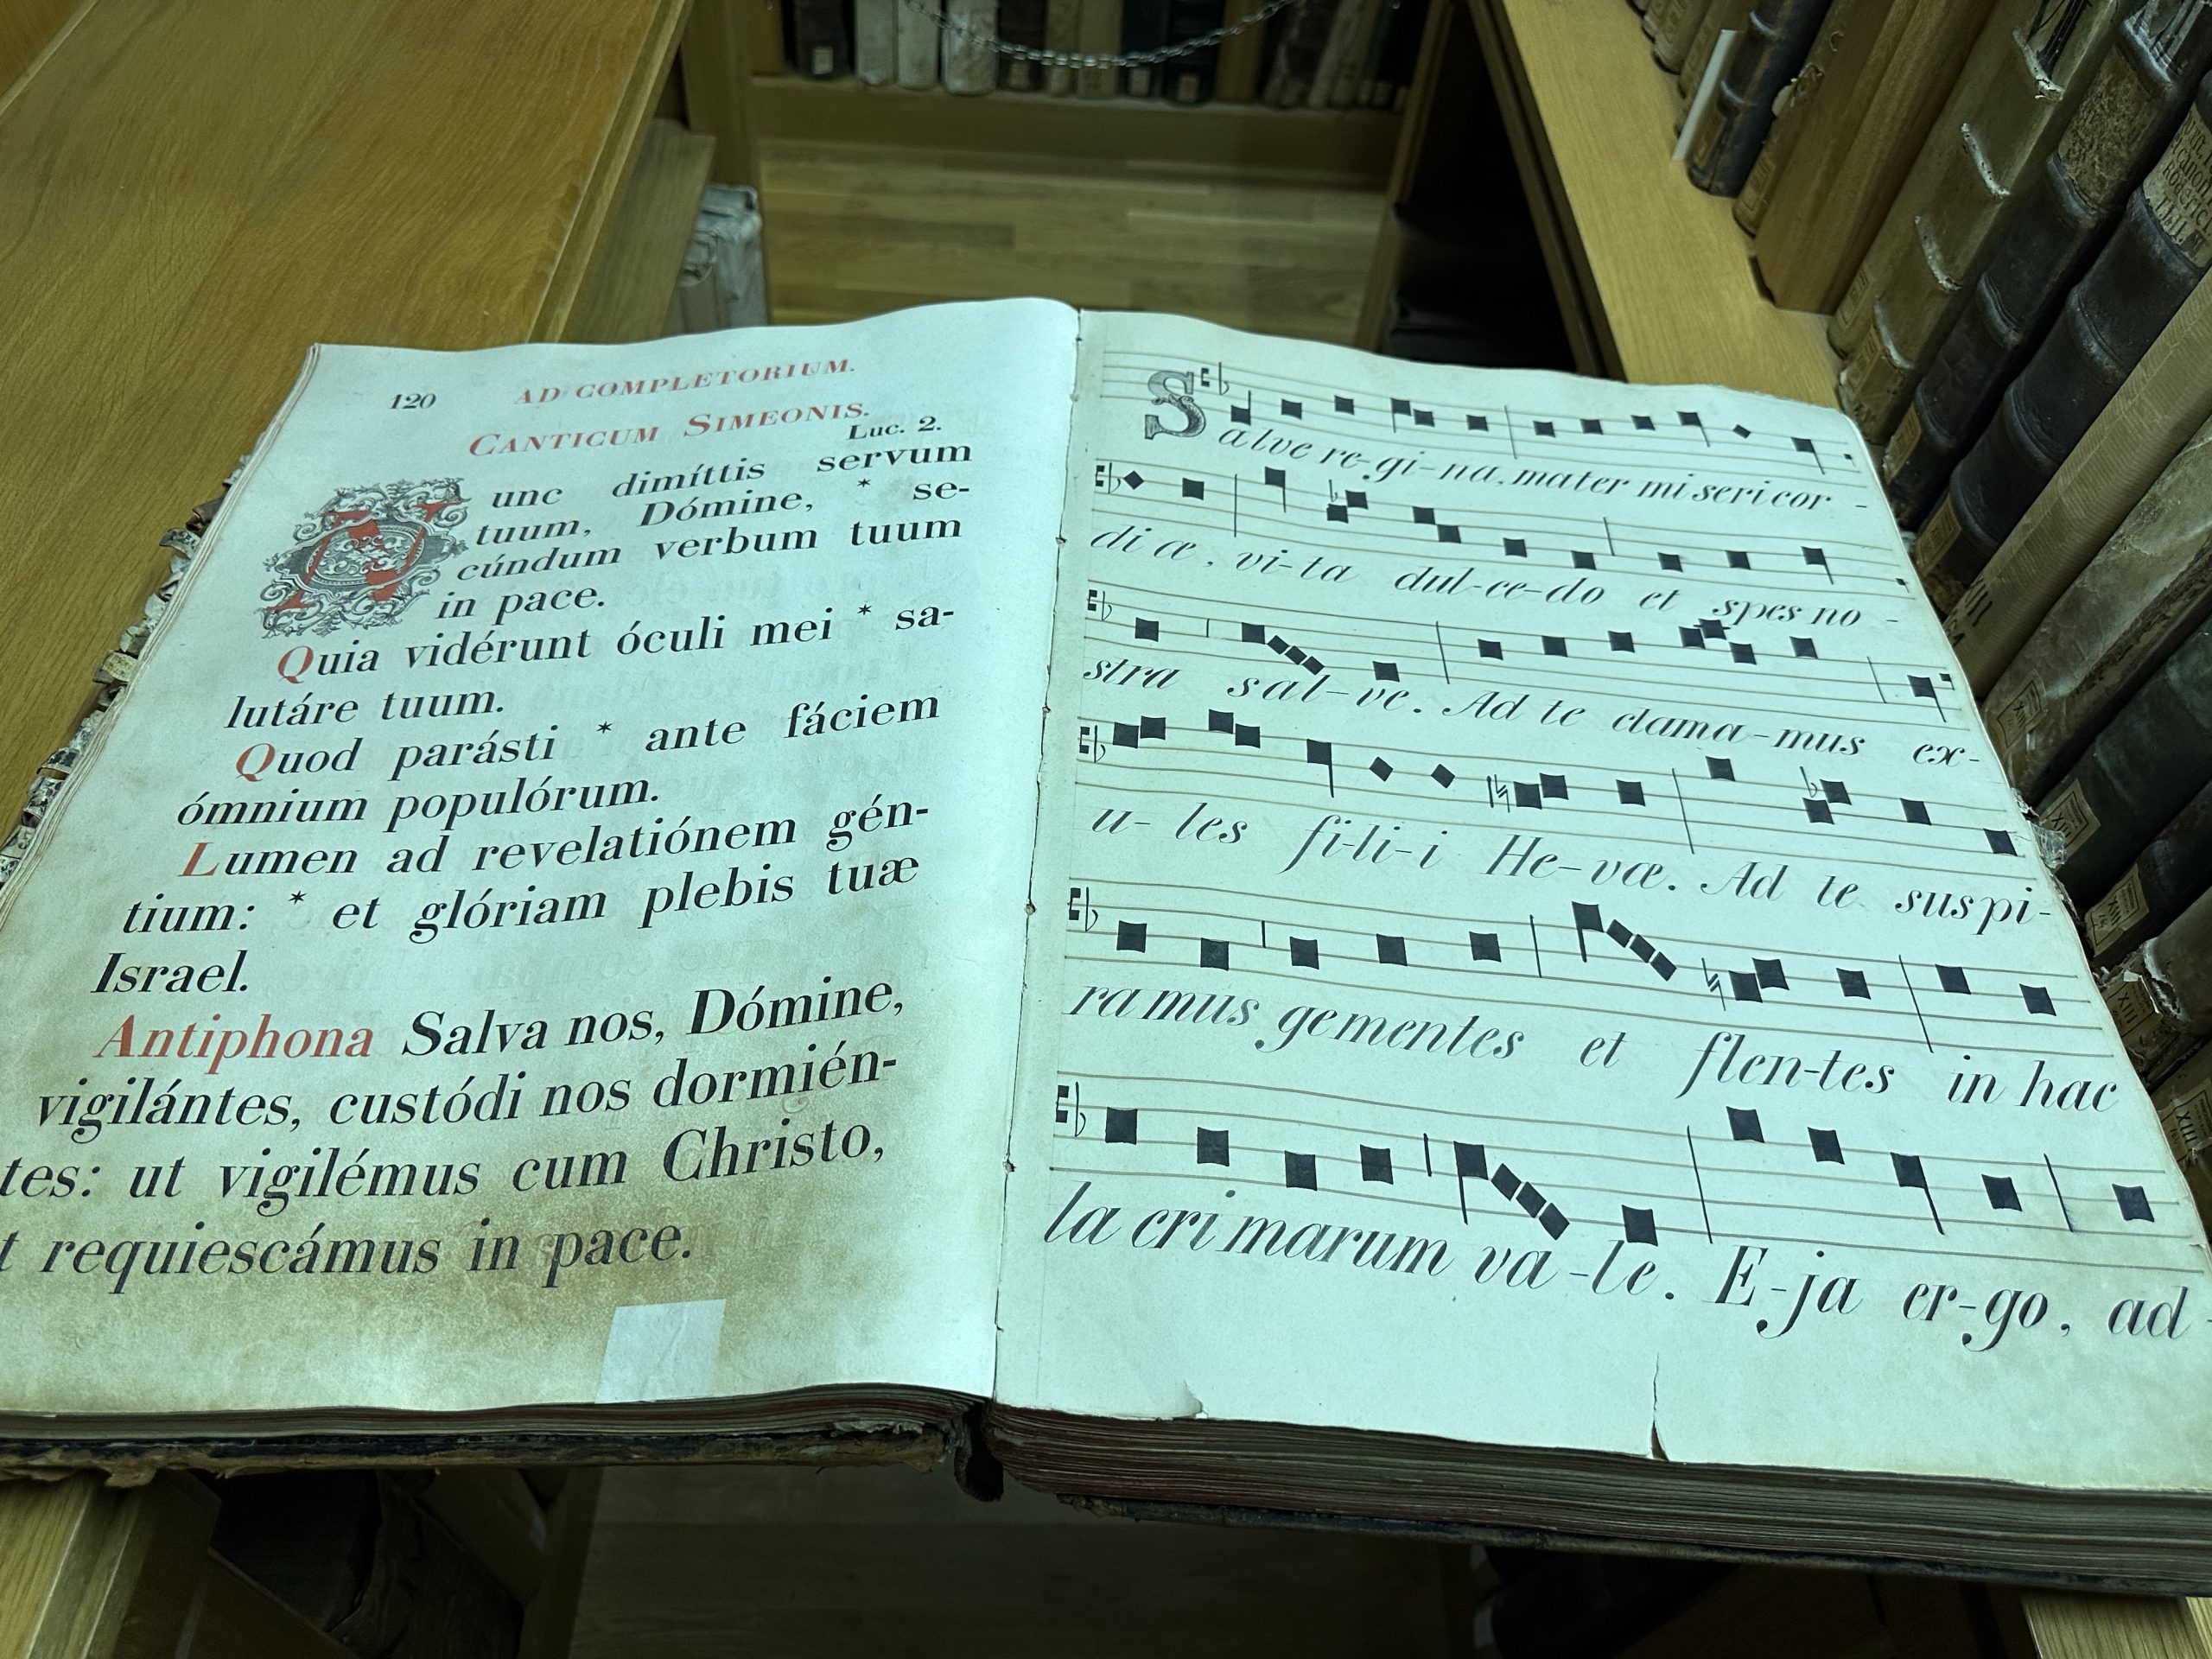 120 AD COMPLETORIUM.
CANTICUM SIMEONIS.
Luc. 2.
Nunc dimíttis servum
tuum, Dómine, * se-
cúndum verbum tuum
in pace.
Quia vidérunt óculi mei * sa-
lutáre tuum.
Quod parásti * ante fáciem
ómnium populórum.
Lumen ad revelatiónem gén-
tium: * et glóriam plebis tuæ
Israel.
Antiphona Salva nos, Dómine,
vigilántes, custódi nos dormién-
tes: ut vigilémus cum Christo,
t requiescámus in pace.
Salve re-gi-na, mater misericor-
diæ, vi-ta dul-ce-do et spes no-
stra sal-ve. Ad te clama-mus ex-
u-les fi-li-i He-væ. Ad te suspi-
ramus gementes et flen-tes in hac
lacrimarum va-le. E-ja er-go, ad-